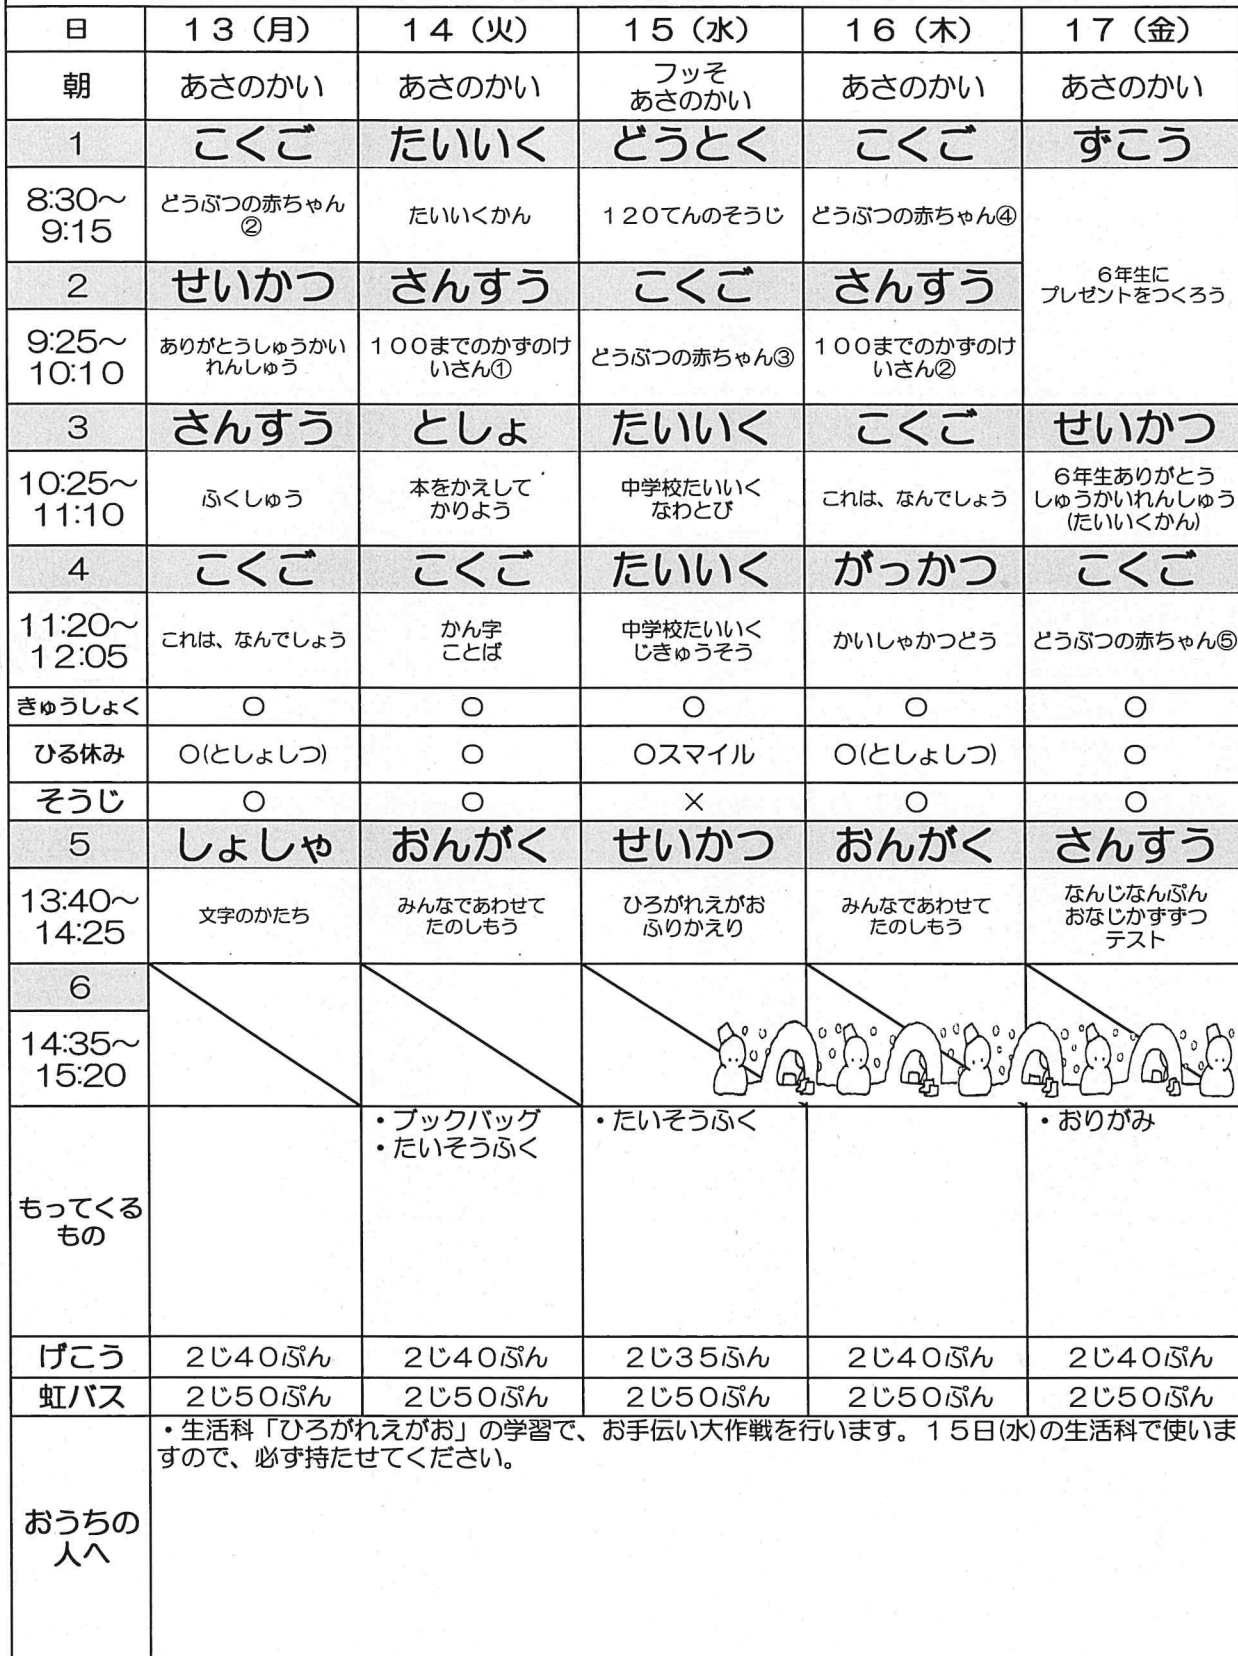 日 13（月） 14（火） 15（水） 16（木） 17（金）
朝 あさのかい あさのかい フッそ あさのかい あさのかい あさのかい
1 こくご たいいく どうとく こくご ずこう
8:30～
9:15
どうぶつの赤ちゃん
②
たいいくかん
120てんのそうじ
どうぶつの赤ちゃん④
6年生に
プレゼントをつくろう
2 せいかつ さんすう こくご さんすう
9:25～
10:10
ありがとうしゅうかい
れんしゅう
100までのかずのけ
いさん①
どうぶつの赤ちゃん③
100までのかずのけ
いさん②
3 さんすう としょ たいいく こくご せいかつ
10:25～
11:10
ふくしゅう
本をかえして
かりよう
中学校たいいく
なわとび
これは、なんでしょう
6年生ありがとう
しゅうかいれんしゅう
(たいいくかん)
4 こくご こくご たいいく がっかつ こくご
11:20～
12:05
これは、なんでしょう
かん字
ことば
中学校たいいく
じきゅうそう
かいしゃかつどう
どうぶつの赤ちゃん⑤
きゅうしょく ○ ○ ○ ○ ○
ひる休み ○(としょしつ) ○ ○スマイル ○(としょしつ) ○
そうじ ○ ○ × ○ ○
5 しょしゃ おんがく せいかつ おんがく さんすう
13:40～
14:25
文字のかたち
みんなであわせて
たのしもう
ひろがれえがお
ふりかえり
みんなであわせて
たのしもう
なんじなんぷん
おなじかずずつ
テスト
6
14:35～
15:20
もってくる
もの
・ブックバッグ
・たいそうふく
・たいそうふく
・おりがみ
げこう 2じ40ぷん 2じ40ぷん 2じ35ふん 2じ40ぷん 2じ40ぷん
虹バス 2じ50ぷん 2じ50ぷん 2じ50ぷん 2じ50ぷん 2じ50ぷん
おうちの
人へ
・生活科「ひろがれえがお」の学習で、お手伝い大作戦を行います。15日(水)の生活科で使いま
すので、必ず持たせてください。